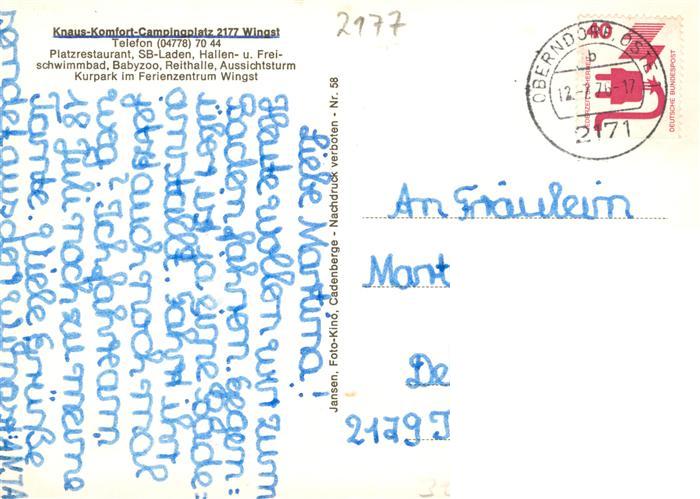 Knaus-Komfort-Campingplatz 2177 Wingst
Telefon (04778) 70 44
Platzrestaurant, SB-Laden, Hallen- u. Frei-
schwimmbad, Babyzoo, Reithalle, Aussichtsturm
Kurpark im Ferienzentrum Wingst
2177
Liebe Martina!
Heute wollen wir zum
Baden fahren. Gegen=
über ist ja eine Bade=
anstalt. Fahrt ihr
jetzt auch noch
weg? Ich fahre am
18. Juli noch zu meiner
Tante. Viele Grüße
ANJA
Jansen, Foto-Kino, Cadenberge - Nachdruck verboten - Nr. 58
40
JEDERZEIT SICHERHEIT
DEUTSCHE BUNDESPOST
OBERNDORF, OSTE
b
12.-7.76-17
2171
An Fräulein
Mart
De
2179 I